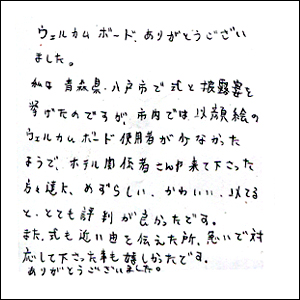 ウェルカムボード、ありがとうござい
ました。
私は青森県八戸市で式と披露宴を
挙げたのですが、市内では以顔絵の
ウェルカムボード使用者が少なかった
ようで、ホテル関係者さんや来て下さった
方々達に、めずらしい、かわいい、以てる
と、とても評判が良かったです。
また、式も近い由を伝えた所、急いで対
応して下さった事も嬉しかったです。
ありがとうございました。